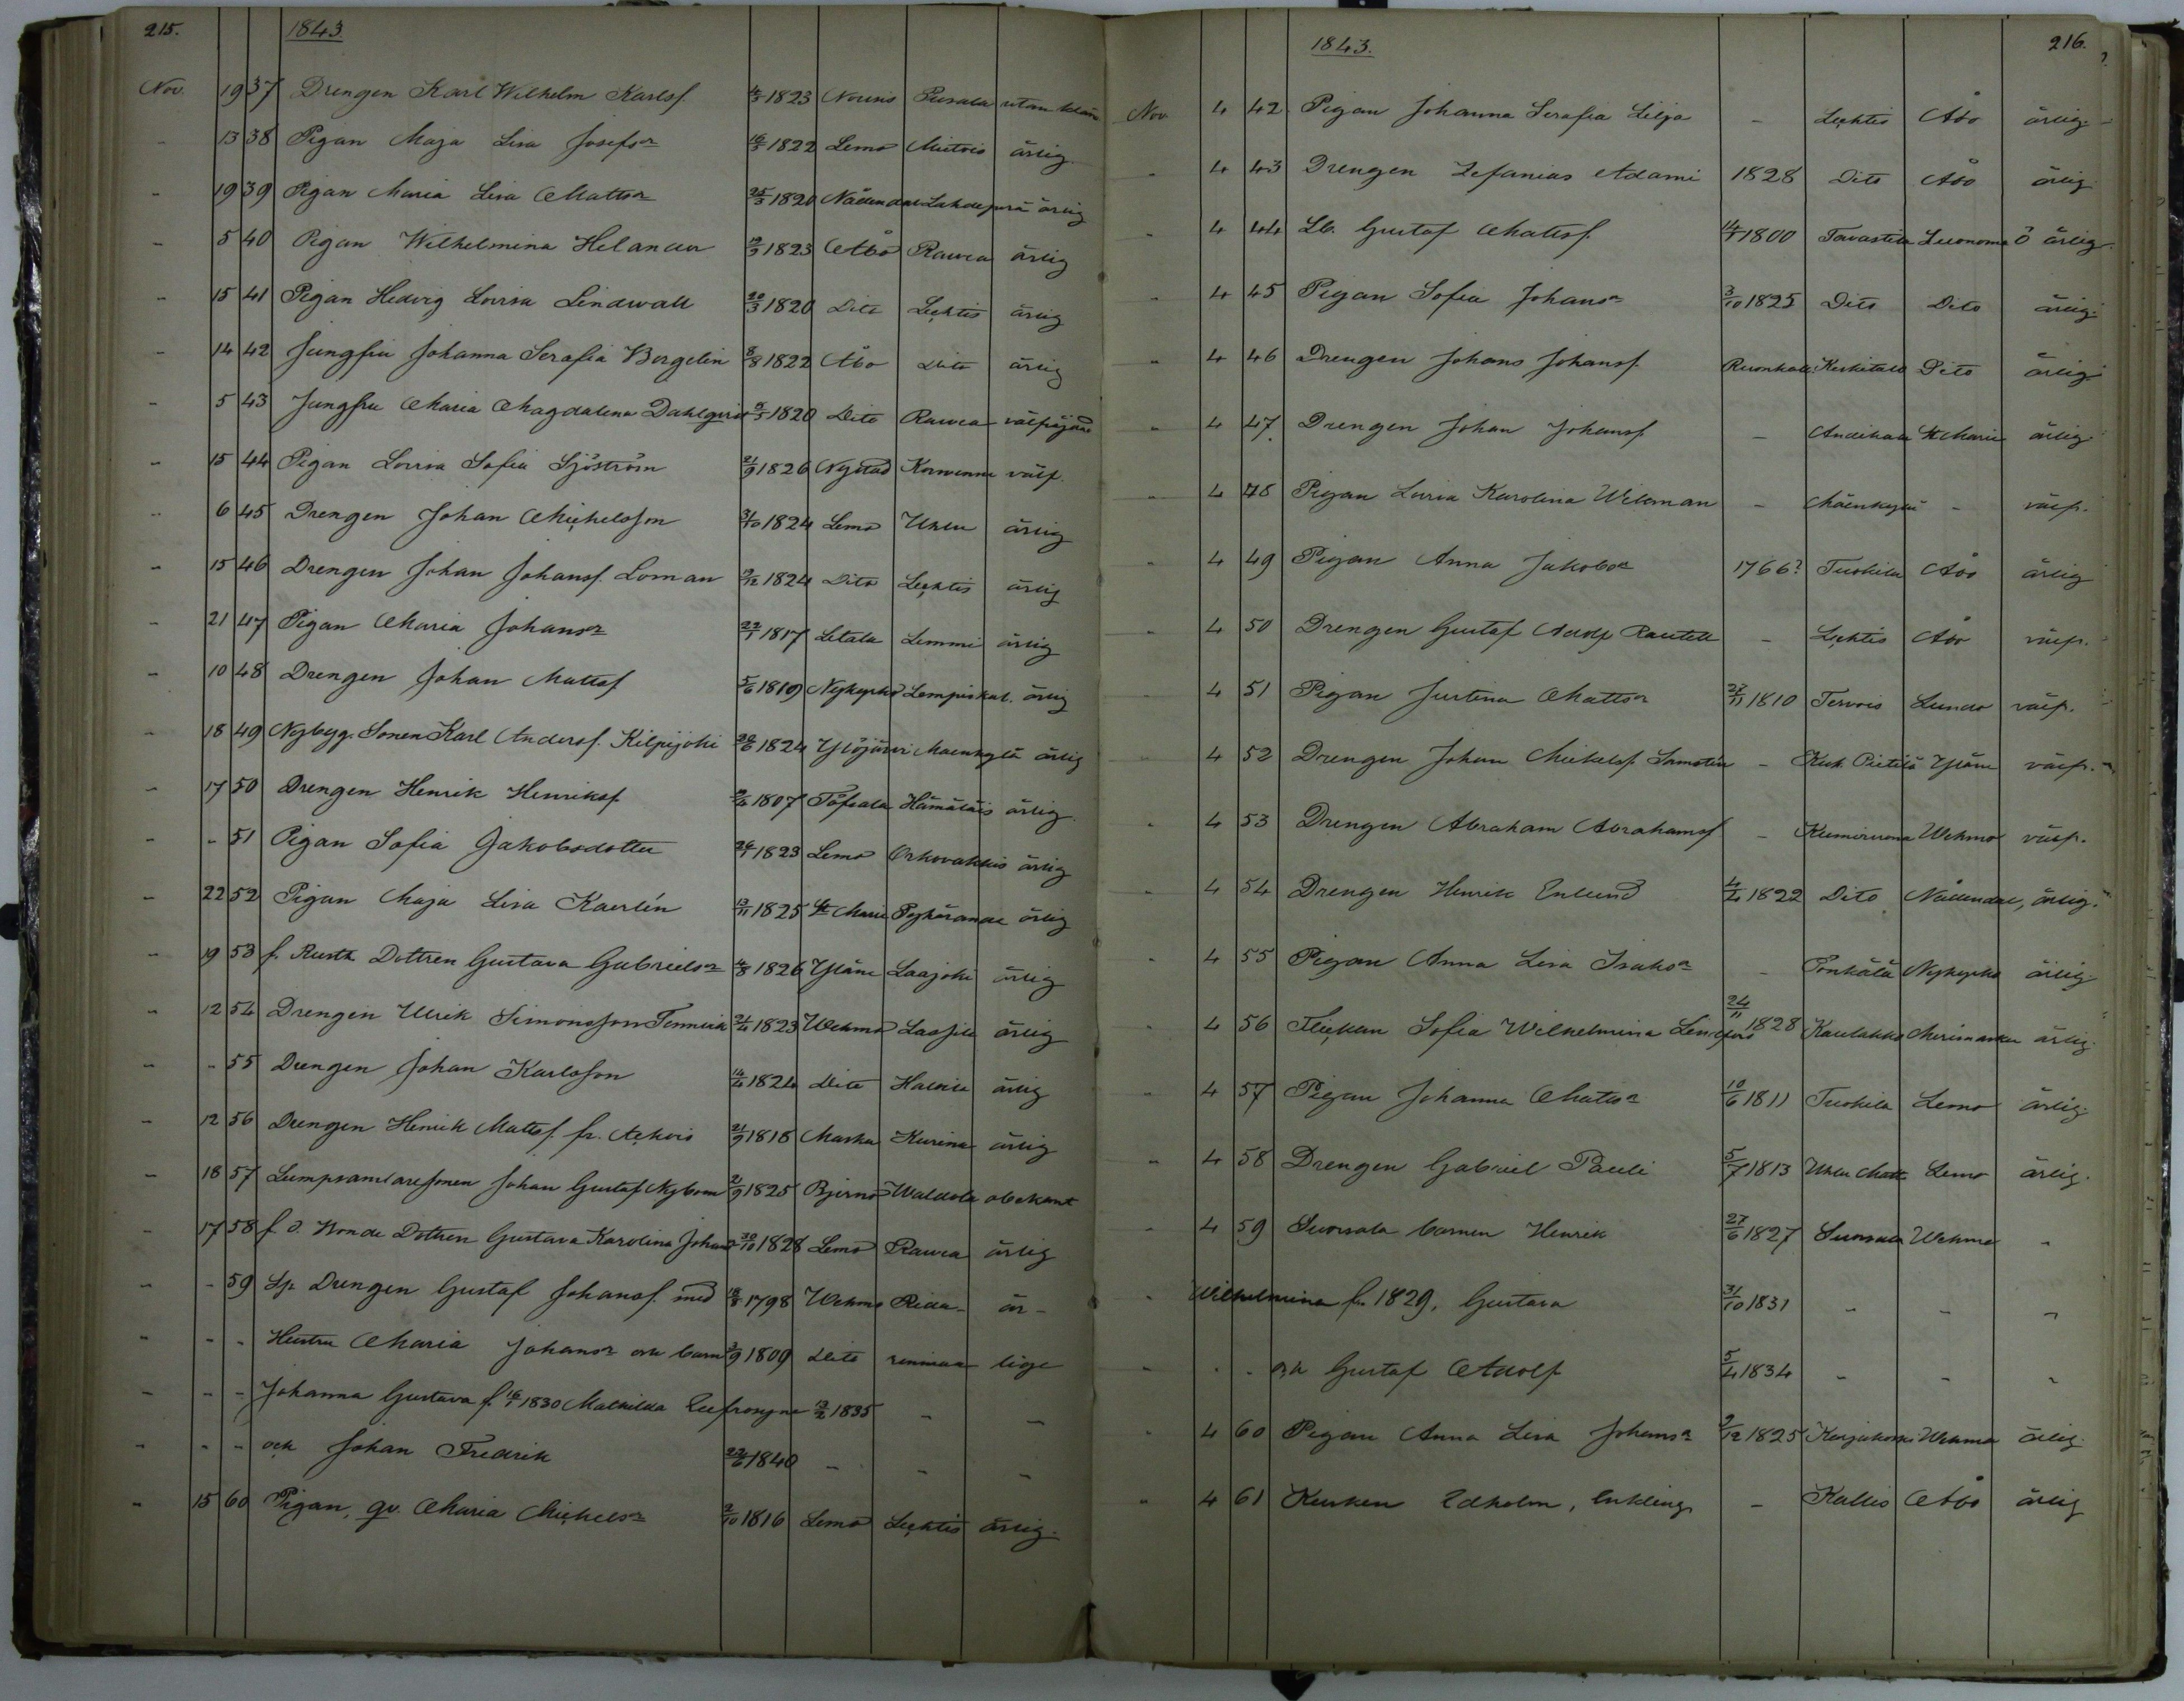 215. 1843.
Nov. 19 37 Drengen Karl Wilhelm Karlsf. 4/3 1823 Nousis Pusala utan
- 13 38 Pigan Maja Lisa Josefsr 16/5 1822 Lemo Mietois ärlig
- 19 39 Pigan Maria Lisa Mattsr 25/3 1820 Nådendal Lahdeperä ärlig
- 5 40 Pigan Wilhelmina Helander 12/3 1823 Åbo Rauvea ärlig
- 15 41 Pigan Hedvig Lovisa Lindwall 20/3 1820 Dito Leçhtis ärlig
- 14 42 Jungfru Johanna Serafia Bergelin 8/8 1822 Åbo Dito ärlig
- 5 43 Jungfru Maria Magdalena Dahlqvist 5/5 1820 Dito Rauvea välfrejdad
- 15 44 Pigan Lovisa Sofia Sjöström 21/9 1826 Nystad välf.
- 6 45 Drengen Johan Michelsson 31/10 1824 Lemo Uhlu ärlig
- 15 46 Drengen Johan Johansf. Loman 9/12 1824 Dito Leçhtis ärlig
- 21 47 Pigan Maria Johansr 22/1 1817 Letala Lemmi ärlig
- 10 48 Drengen Johan Mattsf 5/6 1819 Nykyrko Lempiskal. ärlig
- 18 49 Nybyg. Sonen Karl Andersf. Kilpijoki 20/6 1824 Ylöjärvi Maenkylä ärlig
- 17 50 Drengen Henrik Henriksf. 2/6 1807 Töfsala Hämäläis ärlig
- - 51 Pigan Sofia Jakobsdotter 26/1 1823 Lemo Orhovakkis ärlig
- 22 52 Pigan Maja Lisa Kaerlén 13/11 1825 St Marie Pyhäranda ärlig
- 19 53 f. Rusth. Dottren Gustava Gabrielsr 4/8 1826 Yläne Laajoki ärlig
- 12 54 Drengen Ulrik Simonsson Fennrik 21/4 1823 Wehmo Lassila ärlig
- - 55 Drengen Johan Karlsson 14/4 1824 Dito Halkila ärlig
- 12 56 Drengen Henrik Mattsf. fr. 21/9 1818 Masku Kurima ärlig
- 18 57 Lumpsamlaresonen Johan Gustaf Nybom 2/9 1825 Bjerno Waldola obekant
- 17 58 f. d. Bonde Dottren Gustava Karolina Johansr 30/10 1828 Lemo Rauvea ärlig
- - 59 Sp. Drengen Gustaf Johansf. med 18/8 1798 Wehmo Rida- är-
- - - Hustru Maria Johansr och barn 3/9 1809 Dito renmaa lige
- - - Johanna Gustava f. 16/7 1830 Mathilda Eufrosyne 13/2 1835 - -
- - - och Johan Fredrik 22/6 1840 - - -
- 15 60 Pigan, gv. Maria Michelsr 2/10 1816 Lemo Leçhtis ärlig.
1843. 216.
Nov 4 42 Pigan Johanna Serafia Lilja - Leçhtis Åbo ärlig.
- 4 43 Drengen Zefanias Adami 1828 Dito Åbo ärlig
- 4 44 Lb. Gustaf Mattsf. 14/7 1800 Tavastila Luonoma ö ärlig.
- 4 45 Pigan Sofia Johansr 3/10 1825 Dito Dito ärlig.
- 4 46 Drengen Johans Johansf. Keskitalo Dito ärlig.
- 4 47. Drengen Johan Johansf. - St Marie ärlig.
- 4 48 Pigan Lovisa Karolina Wikman - Mäenkylä - välf.
- 4 49 Pigan Anna Jakobsr 1766? Tuokila Åbo ärlig
- 4 50 Drengen Gustaf Adolf Rautell - Leçhtis Åbo välf.
- 4 51 Pigan Justina Mattsr 27/11 1810 Tervois Lundo välf.
- 4 52 Drengen Johan Mickelsf. Samstén - Kuk. Pietilä Yläne välf.
- 4 53 Drengen Abraham Abrahamsf - Wehmo välf.
- 4 54 Drengen Henrik Enlund 4/4 1822 Dito Nådendal, ärlig.
- 4 55 Pigan Anna Lisa Isaksr - Nykyrko ärlig
- 4 56 Fliçkan Sofia Wilhelmina 24/11 1828 Kaulakko Merimasku ärlig.
- 4 57 Pigan Johanna Mattsr 10/6 1811 Tuokila Lemo ärlig.
- 4 58 Drengen Gabriel Pauli 5/7 1813 Uhlu Matti Lemo ärlig.
- 4 59 Suorsala barnen Henrik 27/6 1827 Suorsala Wehmo -
- Wilhelmina f. 1829, Gustava 31/10 1831 - - -
- - - och Gustaf Adolf 5/4 1834 - - -
- 4 60 Pigan Anna Lisa Johansr 9/12 1825 Karjakoski Wehmo ärlig.
- 4 61 Kusken Edholm, Enkling - Kallis Åbo ärlig